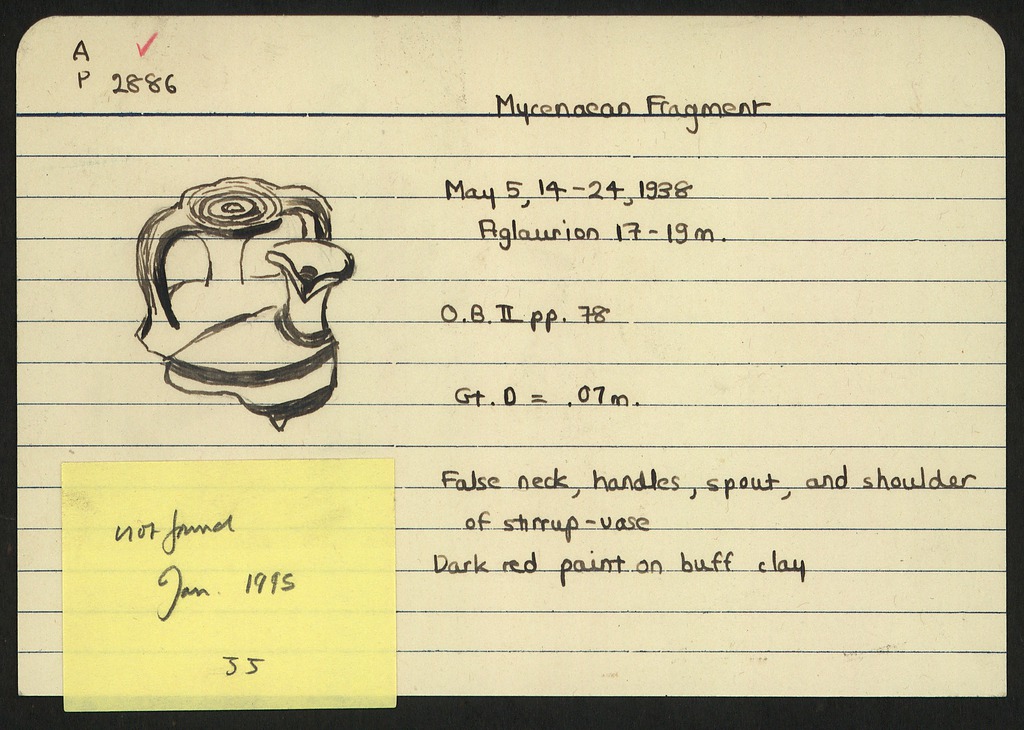 A
P 2886
Mycenaean Fragment
May 5, 14-24, 1938
Aglaurion 17-19m.
O.B. II pp. 78
Gt. D = .07m.
False neck, handles, spout, and shoulder
of stirrup-vase
Dark red paint on buff clay
not found
Jan. 1995